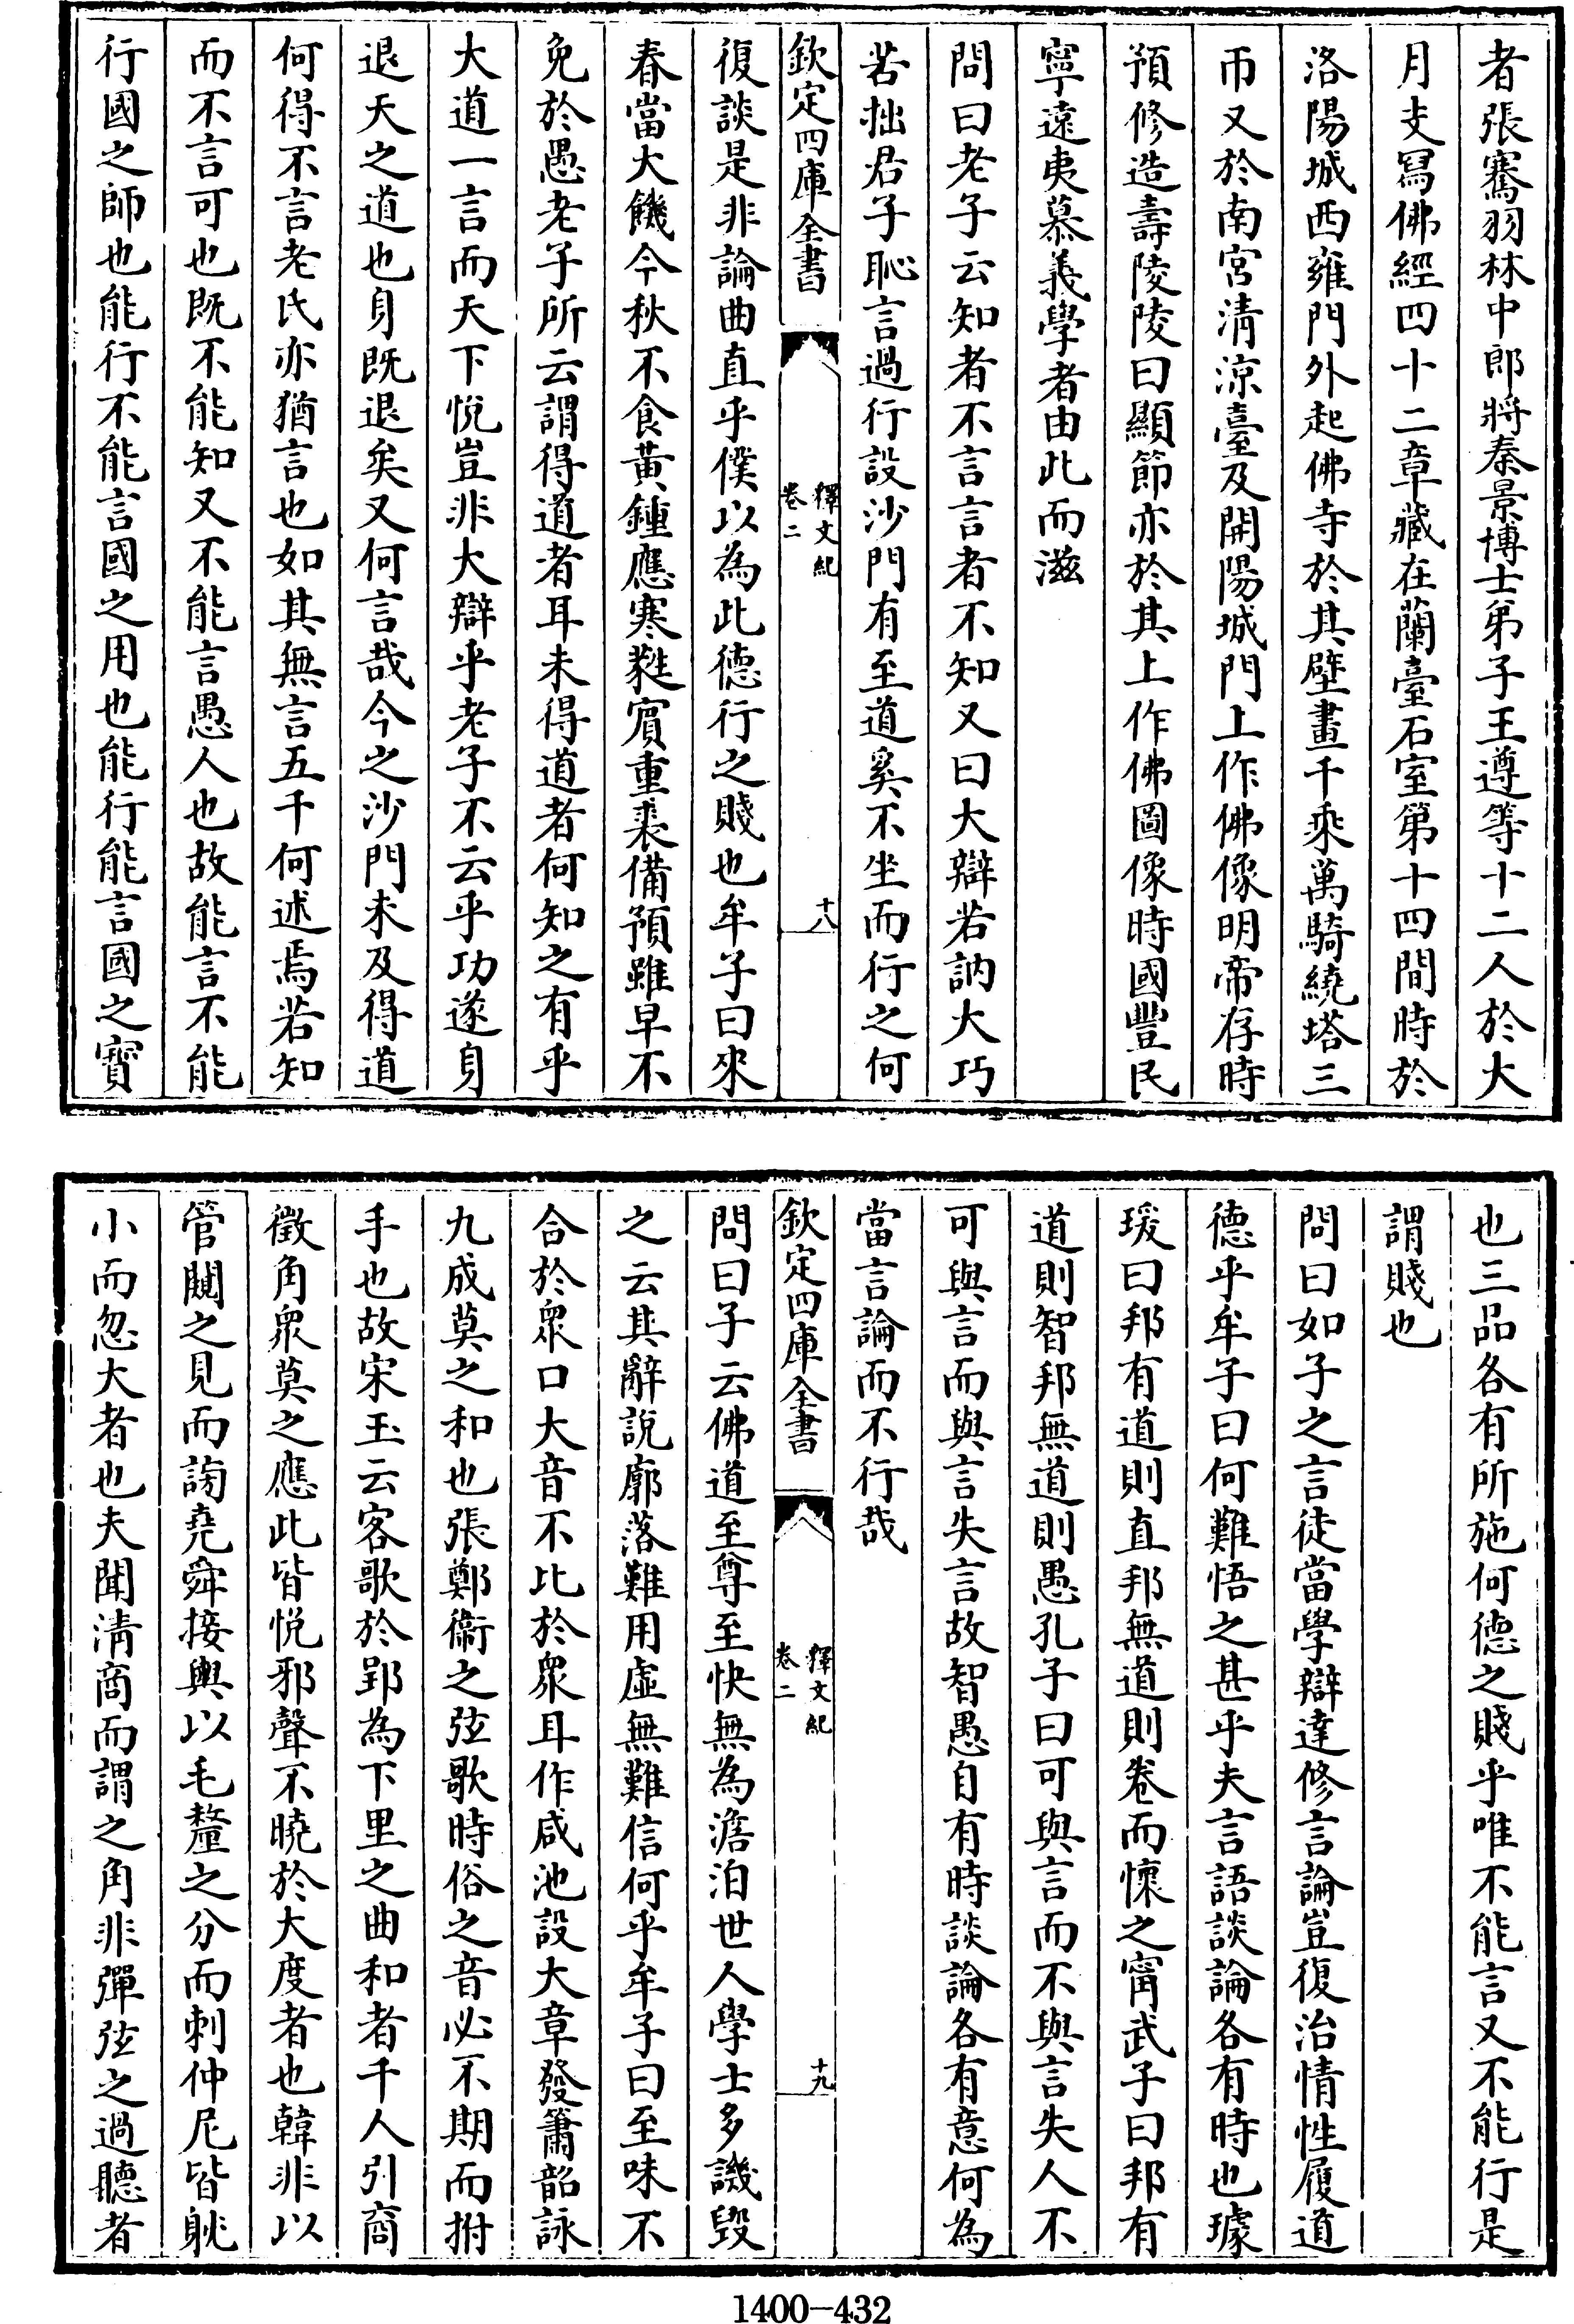 者張騫羽林中郎將秦景博士弟子王遵等十二人於大
月支寫佛經四十二章藏在蘭臺石室第十四間時於
洛陽城西雍門外起佛寺於其壁畫千乘萬騎繞塔三
帀又於南宮清涼臺及開陽城門上作佛像明帝存時
預修造壽陵陵曰顯節亦於其上作佛圖像時國豐民
寧遠夷慕義學者由此而滋
問曰老子云知者不言言者不知又曰大辯若訥大巧
若拙君子恥言過行設沙門有至道奚不坐而行之何
欽定四庫全書
釋文紀
卷二
十八
復談是非論曲直乎僕以為此德行之賤也牟子曰來
春當大饑今秋不食黃鍾應寒蕤賓重裘備預雖早不
免於愚老子所云謂得道者耳未得道者何知之有乎
大道一言而天下悅豈非大辯乎老子不云乎功遂身
退天之道也身既退矣又何言哉今之沙門未及得道
何得不言老氏亦猶言也如其無言五千何述焉若知
而不言可也既不能知又不能言愚人也故能言不能
行國之師也能行不能言國之用也能行能言國之寶
也三品各有所施何德之賤乎唯不能言又不能行是
謂賤也
問曰如子之言徒當學辯達修言論豈復治情性履道
德乎牟子曰何難悟之甚乎夫言語談論各有時也璩
瑗曰邦有道則直邦無道則卷而懷之甯武子曰邦有
道則智邦無道則愚孔子曰可與言而不與言失人不
可與言而與言失言故智愚自有時談論各有意何為
當言論而不行哉
欽定四庫全書
釋文紀
卷二
十九
問曰子云佛道至尊至快無為澹泊世人學士多譏毀
之云其辭說廓落難用虛無難信何乎牟子曰至味不
合於眾口大音不比於眾耳作咸池設大章發簫韶詠
九成莫之和也張鄭衞之弦歌時俗之音必不期而拊
手也故宋玉云客歌於郢為下里之曲和者千人引商
徵角眾莫之應此皆悅邪聲不曉於大度者也韓非以
管闚之見而謗堯舜接輿以毛氂之分而刺仲尼皆眺
小而忽大者也夫聞清商而謂之角非彈弦之過聽者
1400-432